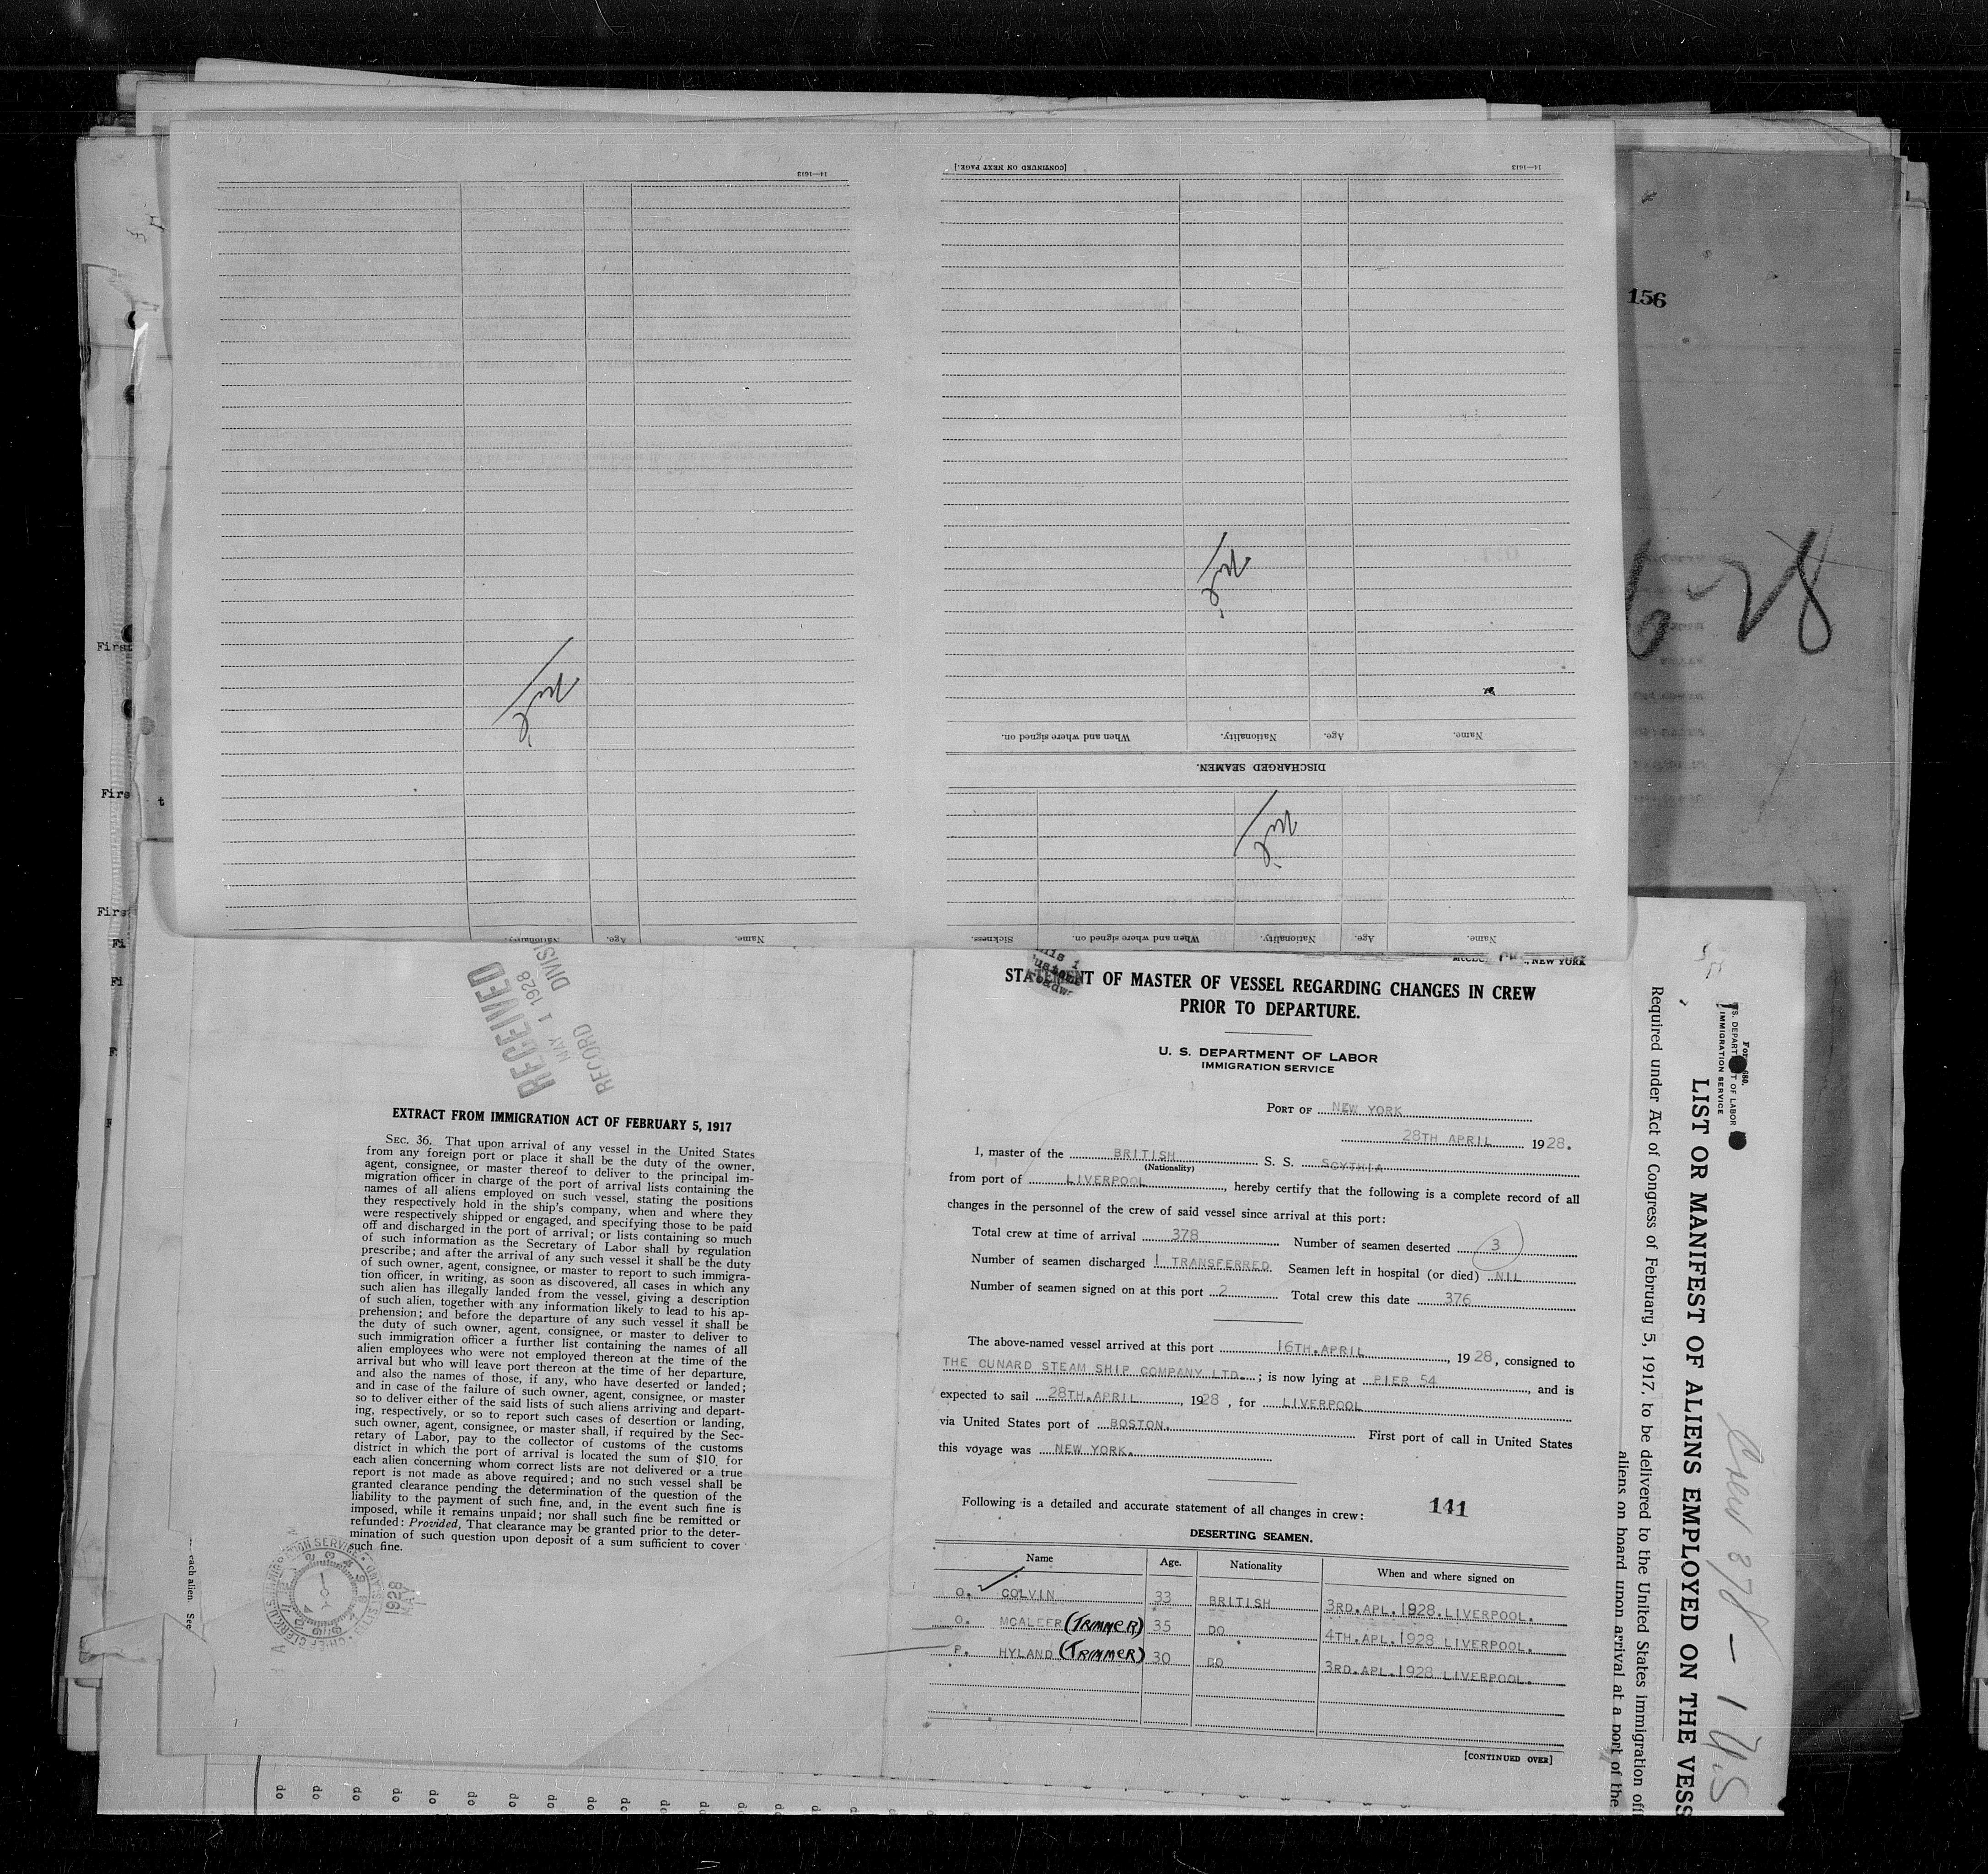 14—1613
[CONTINUED ON NEXT PAGE.]
14—1613
156
6-28
When and where signed on.
Nationality.
Age.
Name.
DISCHARGED SEAMEN.
Nationality.
Age.
Name.
Sickness.
When and where signed on.
Nationality.
Age.
Name.
First
Firs
t
First
Fi
Fi
F
RECEIVED
MAY 1 1928
RECORD DIVISI
EXTRACT FROM IMMIGRATION ACT OF FEBRUARY 5, 1917
SEC. 36. That upon arrival of any vessel in the United States
from any foreign port or place it shall be the duty of the owner,
agent, consignee, or master thereof to deliver to the principal im-
migration officer in charge of the port of arrival lists containing the
names of all aliens employed on such vessel, stating the positions
they respectively hold in the ship's company, when and where they
were respectively shipped or engaged, and specifying those to be paid
off and discharged in the port of arrival; or lists containing so much
of such information as the Secretary of Labor shall by regulation
prescribe; and after the arrival of any such vessel it shall be the duty
of such owner, agent, consignee, or master to report to such immigra-
tion officer, in writing, as soon as discovered, all cases in which any
such alien has illegally landed from the vessel, giving a description
of such alien, together with any information likely to lead to his ap-
prehension; and before the departure of any such vessel it shall be
the duty of such owner, agent, consignee, or master to deliver to
such immigration officer a further list containing the names of all
alien employees who were not employed thereon at the time of the
arrival but who will leave port thereon at the time of her departure,
and also the names of those, if any, who have deserted or landed;
and in case of the failure of such owner, agent, consignee, or master
so to deliver either of the said lists of such aliens arriving and depart-
ing, respectively, or so to report such cases of desertion or landing,
such owner, agent, consignee, or master shall, if required by the Sec-
retary of Labor, pay to the collector of customs of the customs
district in which the port of arrival is located the sum of $10 for
each alien concerning whom correct lists are not delivered or a true
report is not made as above required; and no such vessel shall be
granted clearance pending the determination of the question of the
liability to the payment of such fine, and, in the event such fine is
imposed, while it remains unpaid; nor shall such fine be remitted or
refunded: Provided, That clearance may be granted prior to the deter-
mination of such question upon deposit of a sum sufficient to cover
such fine.
1928
MAY
1
each alien. See
, NEW YORK
STATEMENT OF MASTER OF VESSEL REGARDING CHANGES IN CREW
PRIOR TO DEPARTURE.
U. S. DEPARTMENT OF LABOR
IMMIGRATION SERVICE
PORT OF NEW YORK
28TH APRIL 1928.
I, master of the BRITISH S. S. SCYTHIA
(Nationality)
from port of LIVERPOOL, hereby certify that the following is a complete record of all
changes in the personnel of the crew of said vessel since arrival at this port:
Total crew at time of arrival 378 Number of seamen deserted 3
Number of seamen discharged 1 TRANSFERRED Seamen left in hospital (or died) NIL
Number of seamen signed on at this port 2 Total crew this date 376
The above-named vessel arrived at this port 16TH.APRIL, 1928, consigned to
THE CUNARD STEAM SHIP COMPANY LTD.; is now lying at PIER 54, and is
expected to sail 28TH.APRIL, 1928, for LIVERPOOL
via United States port of BOSTON. First port of call in United States
this voyage was NEW YORK.
Following is a detailed and accurate statement of all changes in crew: 141
DESERTING SEAMEN.
Name Age. Nationality When and where signed on
O. COLVIN 33 BRITISH 3RD.APL.1928.LIVERPOOL.
O. MCALEER (TRIMMER) 35 DO 4TH.APL.1928 LIVERPOOL.
P. HYLAND (TRIMMER) 30 DO 3RD.APL.1928 LIVERPOOL.
[CONTINUED OVER]
do do do do do do do do do do do do do do do
Form 680.
U. S. DEPARTMENT OF LABOR
IMMIGRATION SERVICE
LIST OR MANIFEST OF ALIENS EMPLOYED ON THE VESS
Required under Act of Congress of February 5, 1917, to be delivered to the United States immigration offi
aliens on board upon arrival at a port of the
Crew 378 - 1 U.S